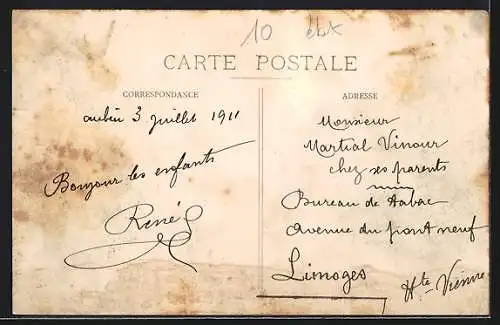 10
CARTE POSTALE
CORRESPONDANCE
aubin 3 juillet 1911
Bonjour les enfants
René
ADRESSE
Monsieur
Martial Vinour
chez ses parents
Bureau de tabac
avenue du pont neuf
Limoges
Hte Vienne